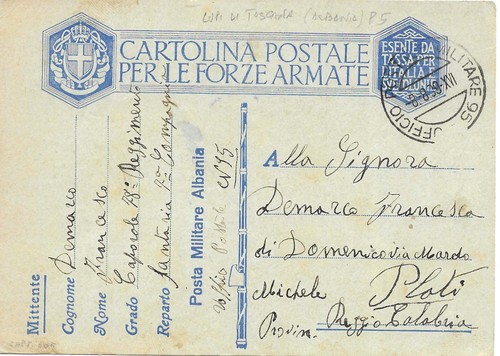 CARTOLINA POSTALE
PER LE FORZE ARMATE
ESENTE DA
TASSA PER
L'ITALIA
E COLONIE
UFFICIO POSTALE MILITARE 95
-8.6.39-XVII
Mittente
Cognome Demarco
Nome Francesco
Grado Caporale 28° Reggimento
Reparto fanteria 2ª Compagnia
Posta Militare Albania
Uffizio Postale N° 95
Alla Signora
Demarco Francesca
di Domenico via Mardo
Michele Platì
Provin. Reggio Calabria